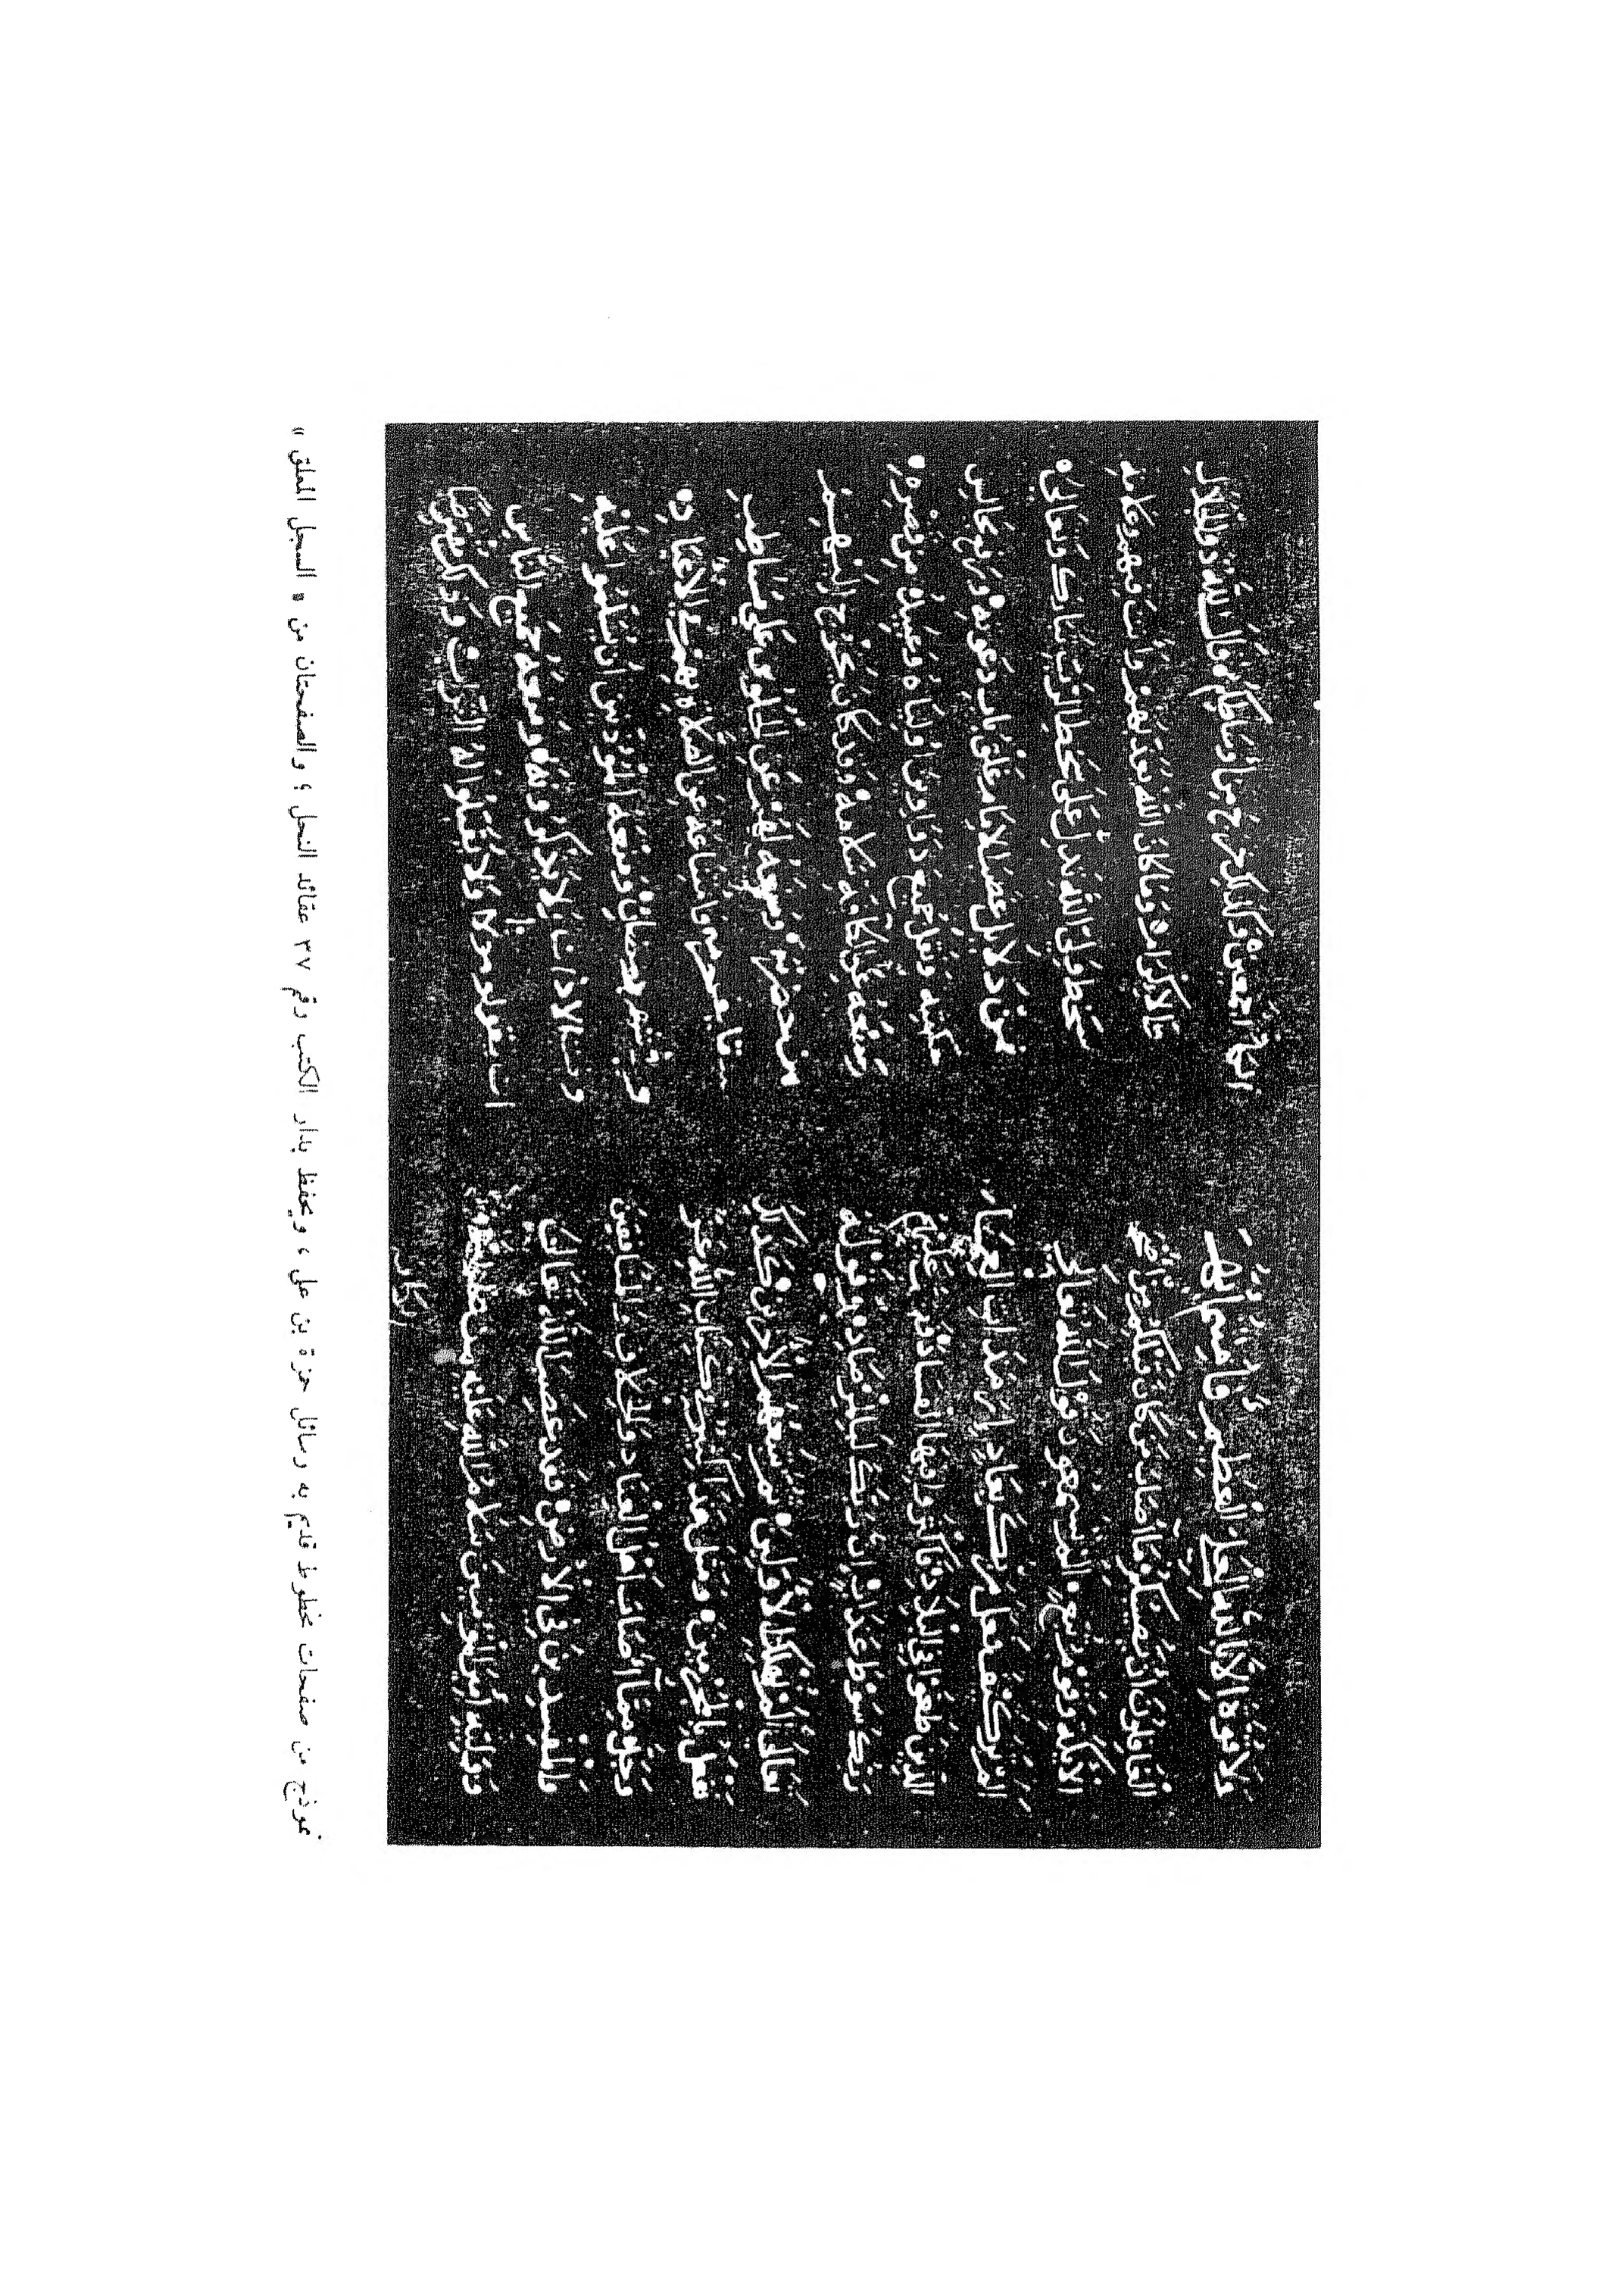 ولا قوة الا بالله العلي العظيم ايها
الغافلون ان يصيبكم ما اصاب من كان قبلكم من اصحاب
الايكه وقوم تبع الم تسمعون قول الله تعالي
الم تر كيف فعل ربك بعاد ارم ذات العماد
الذين طغوا في البلاد فاكثروا فيها الفساد فصب عليهم
ربك سوط عذاب ان ربك لبالمرصاد وقوله
تعالى الم نهلك الاولين ثم نتبعهم الاخرين كذلك
نفعل بالمجرمين ومثل هذا كثير في كتاب الله عز
وجل ومما اصابت اهل العناد والخلاف والفاسقين
والمفسدين في الارض فقد غضب الله تعالى
ووليه امير المؤمنين سلام الله عليه من عظم
اسراف
الكافة اجمعين ولذلك خرج من اوساطكم قال الله ذو الجلال
والاكرام وما كان الله معذبهم وانت فيهم وعلامة
سخط ولي الله تدل على سخط الخالق تبارك وتعالى
فمن دلايل غضب الامام غلق باب دعوته ورفع مجالس
حكمته ونقل جميع دواوين اولياه وعبيده من قصره
ومنعه عن الكافة سلامه وقد كان يخرج اليهم
من حضرته ومنعه لهم عن الجلوس على مصاطب
سقايف حرمه وامتناعه عن الصلاه بهم في الاعياد
وفي شهر رمضان ومنعه الموذنين ان يسلموا عليه
وقت الاذان ولا يذكرونه ومنعه جميع الناس
ان يقولوا مولانا ولا يقبلوا له التراب وذلك
نموذج من صفحات مخطوط قديم به رسائل حمزة بن على ، ويحفظ بدار الكتب رقم ٣٧ عقائد النحل ؛ والصفحتان من « السجل المعلق »